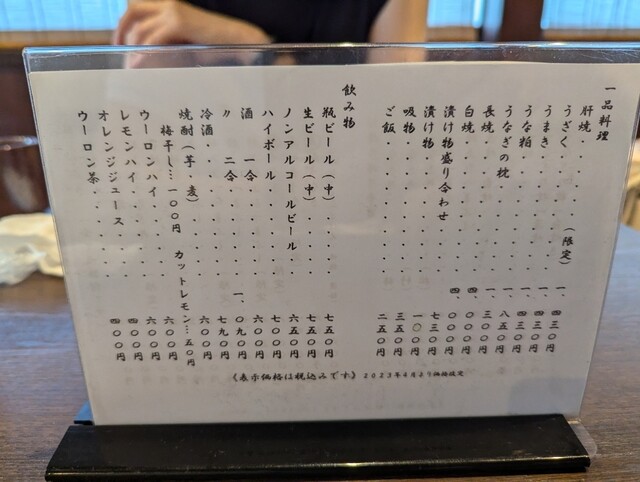 一品料理
肝焼・・・・・(限定) 一、四三〇円
うざく・・・・・ 一、四三〇円
うまき・・・・・ 一、四三〇円
うな粕・・・・・ 八五〇円
うなぎの枕・・・・・ 一、三〇〇円
長焼・・・・・ 四、〇〇〇円
白焼・・・・・ 四、〇〇〇円
漬け物盛り合わせ・・・ 七三〇円
漬け物・・・・・
吸物・・・・・ 三五〇円
ご飯・・・・・ 二五〇円
飲み物
瓶ビール(中)・・・・ 七五〇円
生ビール(中)・・・・ 七五〇円
ノンアルコールビール・ 六五〇円
ハイボール・・・・・ 七〇〇円
酒 一合・・・・・ 六〇〇円
〃 二合・・・・・ 一、〇九〇円
冷酒・・・・・ 七九〇円
焼酎(芋・麦)・・・・ 六〇〇円
梅干し…一〇〇円 カットレモン…五〇円
ウーロンハイ・・・・・ 六〇〇円
レモンハイ・・・・・ 六〇〇円
オレンジジュース・・・ 四〇〇円
ウーロン茶・・・・・ 四〇〇円
《表示価格は税込みです》2023年4月より価格改定